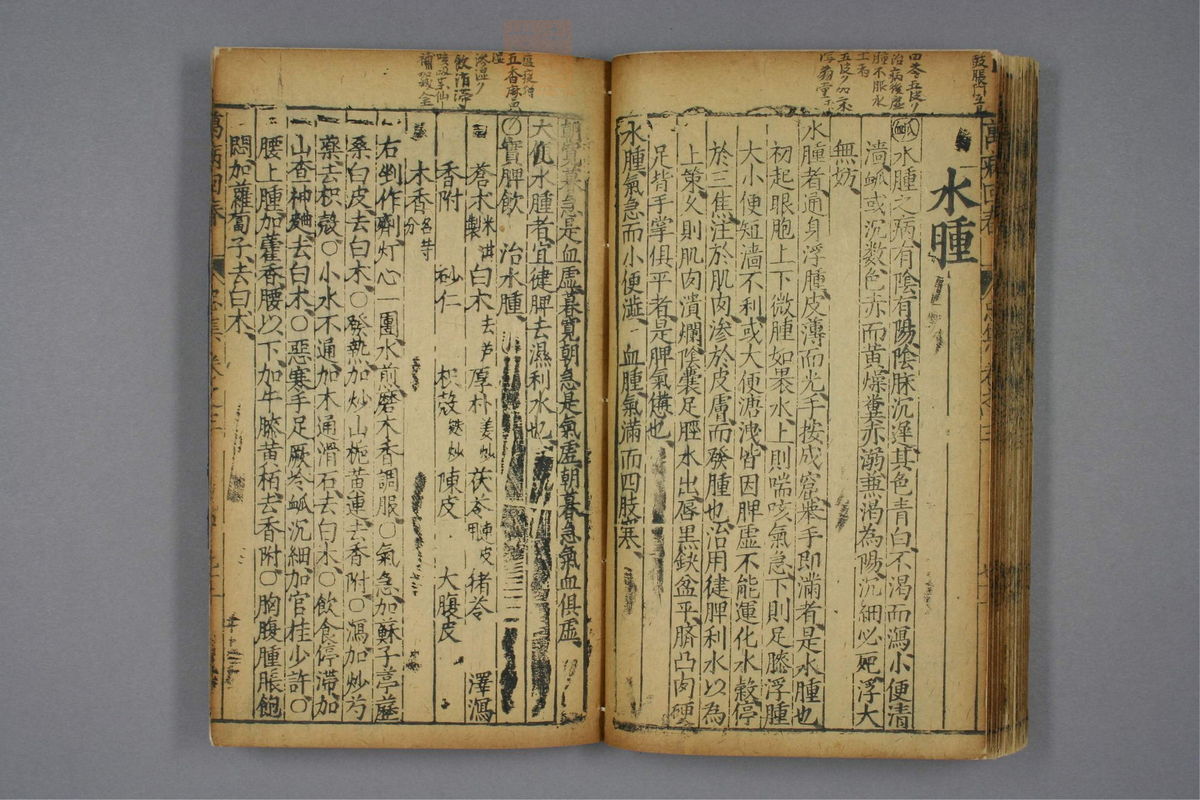 水腫
脉 水腫之病有陰有陽陰脉沉遲其色青白不渴而瀉小便清
濇脉或沉数色赤而黄燥糞赤溺兼渴為陽沉細必死浮大
無妨
水腫者通身浮腫皮薄而光手按成窟舉手即滿者是水腫也
初起眼胞上下微腫如裹水上則喘咳氣急下則足膝浮腫
大小便短濇不利或大便溏洩皆因脾虛不能運化水穀停
於三焦注於肌肉滲於皮膚而發腫也治用健脾利水以為
上策久則肌肉潰爛陰囊足脛水出唇黑缺盆平臍凸肉硬
足背手掌俱平者是脾氣憊也
水腫氣急而小便澁 血腫氣滿而四肢寒
朝寛暮急是血虛暮寛朝急是氣虛朝暮急氣血俱虛
大凡水腫者宜健脾去濕利水也
○實脾飲 治水腫
蒼术米泔製 白木去芦 厚朴姜炒 茯苓連皮用 猪苓 澤瀉
香附 砂仁 枳殻麩炒 陳皮 大腹皮
木香各等分
右剉作劑灯心一團水煎磨木香調服○氣急加蘇子葶藶
桑白皮去白木○發熱加炒山梔黄連去香附○瀉加炒芍
藥去枳殻○小水不通加木通滑石去白木○飲食停滯加
山查神麯去白木○惡寒手足厥冷脉沉細加官桂少許○
腰上腫加藿香腰以下加牛膝黄栢去香附○胸腹腫脹飽
悶加蘿蔔子去白木
萬病回春